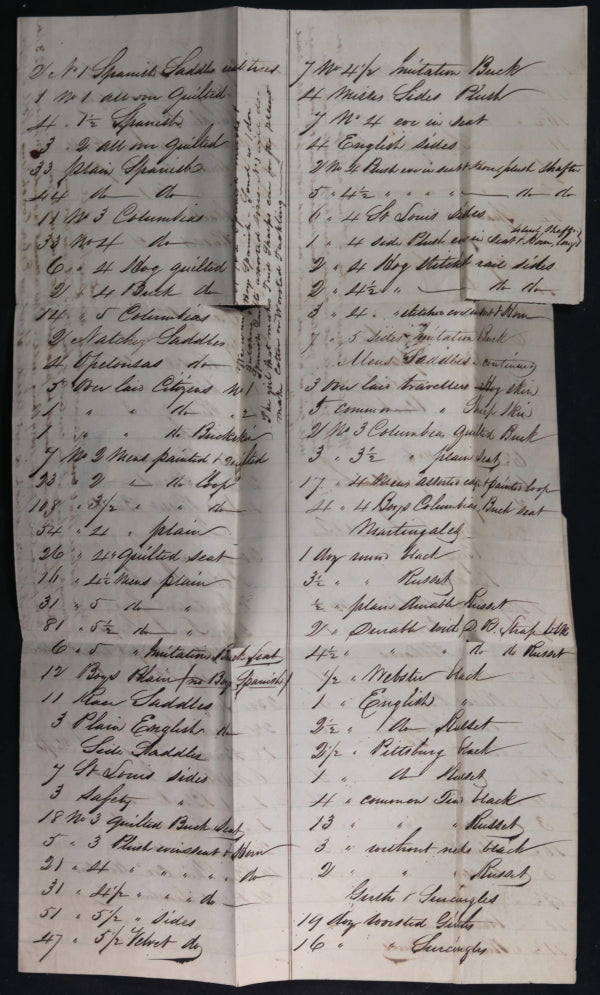 2 No 1 Spanish Saddles
1 No 1 all over Quilted
4 " 1½ Spanish
3 " 2 all over Quilted
33 plain Spanish
44 do do
11 No 3 Columbias
33 No 4 do
6 " 4 Hog quilted
2 " 4 Buck do
14 " 5 Columbias
2 Natchez Saddles
4 Opelousas do
5 Over laid Citizens No 1
1 " " do " 2
1 " " do Buckskin
7 No 2 Mens painted & quilted
23 " 2 — do loop
108 " 3½ " " do
54 " 4 " plain
26 " 4 Quilted seat
16 " 4½ Mens plain
31 " 5 do "
81 " 5½ do "
6 " 5 " Imitation Buck Seat
12 Boys Plain (no Boys Spanish)
11 Race Saddles
3 Plain English do
Side Saddles
7 St Louis sides
3 Safety "
18 No 3 quilted Buck Seat
5 " 3 Plush over seat & Horn
21 " 4 " " " " do
31 " 4½ " " " do
51 " 5½ " sides
47 " 5½ Velvet do
Spanish
The girl that makes
make Cotton or Worsted
7 No 4½ Imitation Buck
4 Misses Sides Plush
7 No 4 over seat
4 English sides
2 No 4 Plush over seat & Horn plush
5 " 4½ " " " " — do do
6 " 4 St Louis sides
1 " 4 side Plush over seat & Horn
2 " 4 Hog stitched rail sides
2 " 4½ " — do do
3 " 4 " stitched over seat & Horn
7 " 5 sides Imitation Buck
Mens Saddles continued
3 Over laid travellers Hog skin
5 common " Sheep Skin
2 No 3 Columbias quilted Buck
3 " 3½ " plain seat
17 " 4 Mens assorted & painted loop
4 " 4 Boys Columbias, Buck seat
Martingales
1 doz round black
3½ " " Russet
½ " plain durable Russet
2 " Durable with Strap blk
4½ " " " do do Russet
½ " Webster black
1 " English "
2½ " do Russet
2½ " Pittsburg black
1 " do Russet
4 " common black
13 " " " Russet
3 " without black
2 " " " Russet
Girths & Surcingles
19 doz worsted Girths
16 " " Surcingles